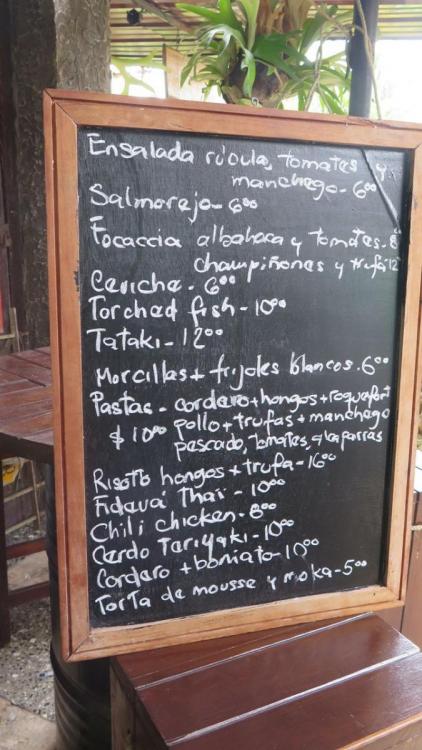 Ensalada rúcula, tomates y
manchego - 6⁰⁰
Salmorejo - 6⁰⁰
Focaccia albahaca y tomates - 8
champiñones y trufa 12
Ceviche - 6⁰⁰
Torched fish - 10⁰⁰
Tataki - 12⁰⁰
Morcillas + frijoles blancos - 6⁰⁰
Pastas - cordero + hongos + roquefort
$ 10⁰⁰ pollo + trufas + manchego
pescado, tomates, alcaparras
Risotto hongos + trufa - 16⁰⁰
Fideuá Thai - 10⁰⁰
Chili chicken - 8⁰⁰
Cerdo Teriyaki - 10⁰⁰
Cordero + boniato - 10⁰⁰
Torta de mousse y moka - 5⁰⁰